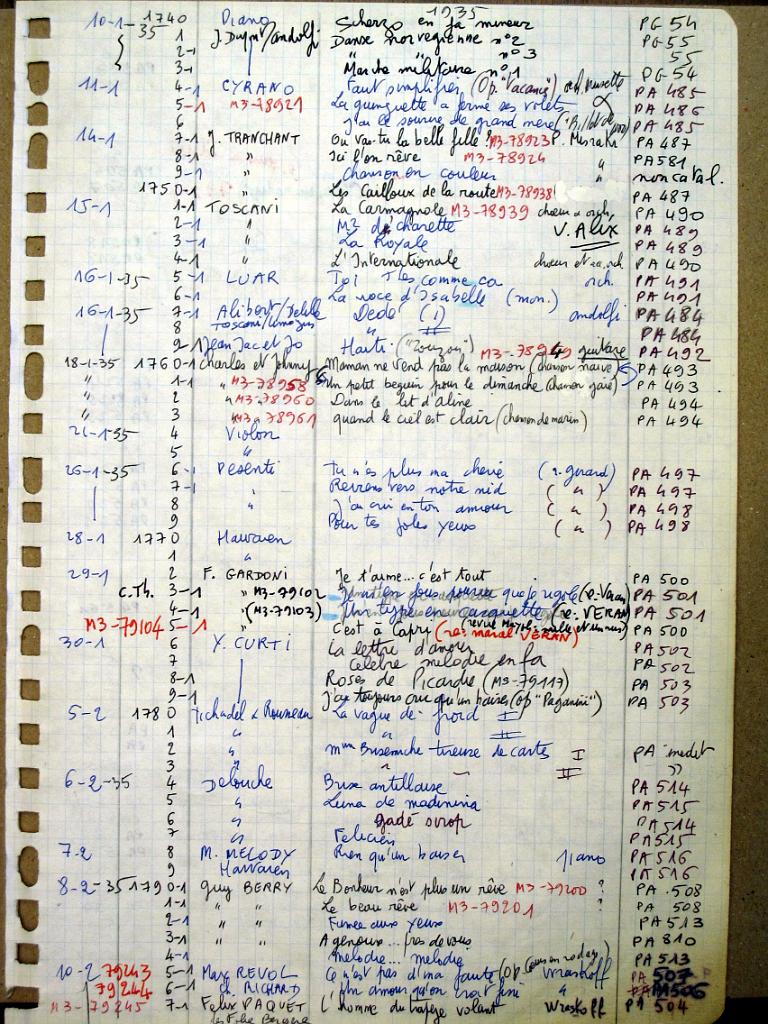 1935
10-1-35 1740 Piano Scherzo en fa mineur PG 54
1 J. Danse norvegienne n°2 PG 55
2-1 " " n°3 55
3-1 Marche militaire n°1 PG 54
11-1 4-1 CYRANO Faut simplifier (Op. "Vacances") orch. musette PA 485
5-1 M3-78921 La guinguette a fermé ses volets PA 486
6 J'ai le sourire de grand mère PA 485
14-1 7-1 J. TRANCHANT Ou vas-tu la belle fille? M3-78923 P. Misraki PA 487
8-1 " Ici l'on rêve M3-78924 " PA 581
9-1 " chanson en couleur " non catal.
1750-1 " Les Cailloux de la route M3-78938 PA 487
15-1 1-1 TOSCANI La Carmagnole M3-78939 PA 490
2-1 " V. ALIX PA 489
3-1 " La Royale PA 489
4-1 " L'Internationale PA 490
16-1-35 5-1 LUAR Toi T'es comme ca orch. PA 491
6-1 La noce d'Isabelle (mon.) PA 491
16-1-35 7-1 Alibert/ Dédé (I) andolfi PA 484
8 " II PA 484
9-1 Jean Jac et Jo Haiti ("Zouzou") M3-78949 guitare PA 492
18-1-35 1760-1 Charles et Johnny Maman ne vend pas la maison (chanson naive) PA 493
" 1-1 " M3-78958 Un petit beguin pour le dimanche (chanson gaie) PA 493
" 2 " M3-78960 Dans le lit d'aline PA 494
" 3 M3-78961 quand le ciel est clair (chanson de marin) PA 494
21-1-35 4 Violon
5 "
25-1-35 6-1 Pesenti Tu n'es plus ma chérie PA 497
7-1 Reviens vers notre nid ( " ) PA 497
8 " J'ai cru en ton amour ( " ) PA 498
9 Pour tes jolis yeux ( " ) PA 498
28-1 1770 Hawaien
1 "
29-1 2 F. GARDONI Je t'aime... c'est tout PA 500
C.Th. 3-1 " M3-79102 PA 501
4-1 " (M3-79103) Un type en casquette (v: VERAN) PA 501
M3-79104 5-1 " C'est à Capri PA 500
30-1 6 Y. CURTI La lettre d'amour PA 502
7 Celebre melodie en fa PA 502
8-1 Roses de Picardie (M3-79117) PA 503
9-1 J'ai toujours cru qu'un baiser (op "Paganini") PA 503
5-2 1780 La vague de froid I
1 " " II
2 " tireuse de cartes I PA inedit
3 " " II "
6-2-35 4 Delouche Brise antillaise PA 514
5 " Luna de madinina PA 515
6 " gadé sirop PA 514
7 " Felicien PA 515
7-2 8 M. MELODY Rien qu'un baiser piano PA 516
9 Hawaien PA 516
8-2-35 1790-1 Guy BERRY Le Bonheur n'est plus un rêve M3-79200 ? PA 508
1-1 " " Le beau rêve M3-79201 ? PA 508
2-1 " " Fumée aux yeux PA 513
3-1 " " A genoux... près de vous PA 810
4-1 Melodie... melodie PA 513
10-2 79243 5-1 Max REVOL Ce n'est pas d'ma faute wraskoff PA 507
79244 6-1 RICHARD Un amour qu'on croit fini " PA 506
M3-79245 7-1 Felix PAQUET L'homme du trapèze volant Wraskoff PA 504